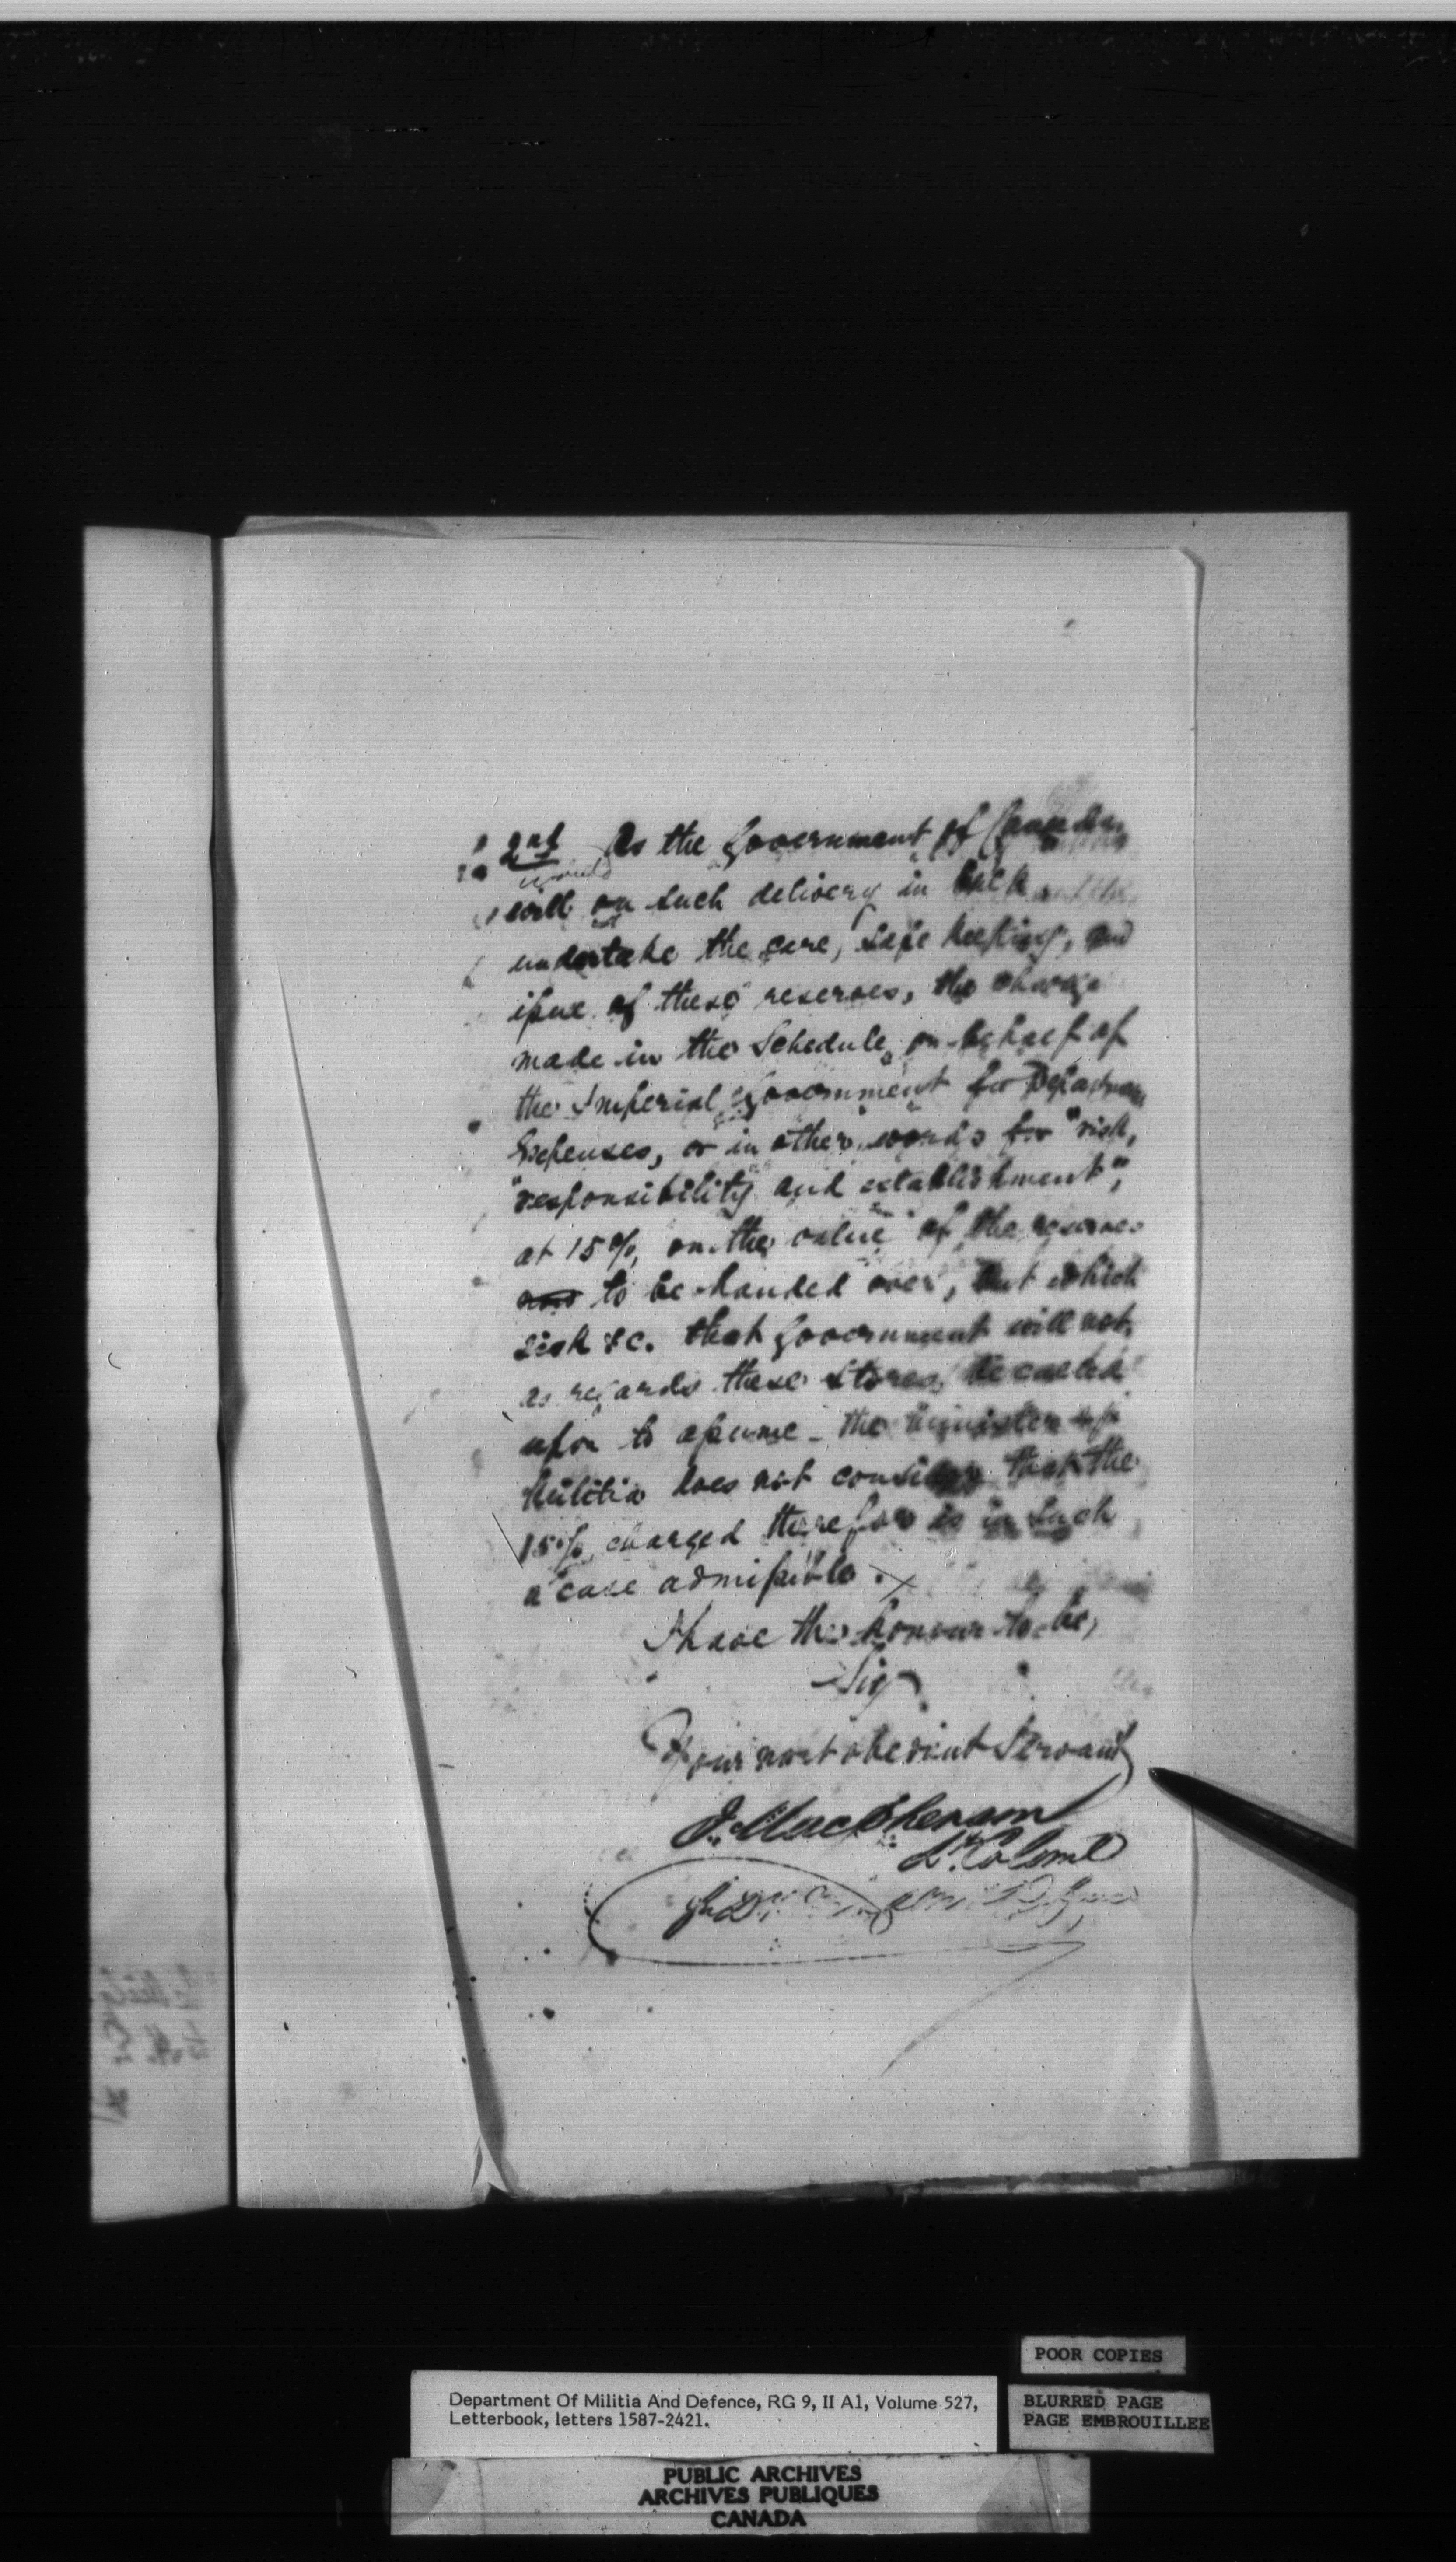 2nd As the Government of Canada
would
will on such delivery in bulk
undertake the care, safe keeping, and
issue of these reserves, the charge
made in the Schedule on behalf of
the Imperial Government for Departmental
Expenses, or in other words for "risk,
"responsibility and establishment",
at 15%, on the value of the reserves
now to be handed over, but which
risk &c. that Government will not,
as regards these stores, be called
upon to assume - the Minister of
Militia does not consider that the
15%, charged therefor is in such
a case admissible.
I have the honour to be,
Sir
Your most obedient Servant
J. Macpherson
Lt. Colonel
POOR COPIES
BLURRED PAGE
PAGE EMBROUILLEE
Department Of Militia And Defence, RG 9, II A1, Volume 527,
Letterbook, letters 1587-2421.
PUBLIC ARCHIVES
ARCHIVES PUBLIQUES
CANADA